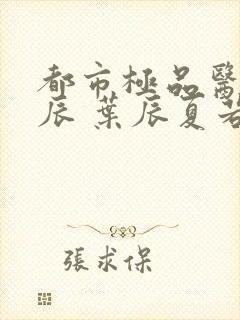 都市極品醫
辰 葉辰夏若
張求保